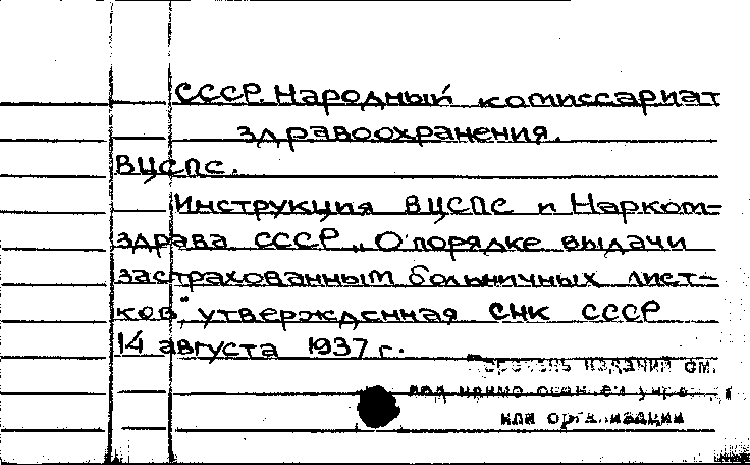 СССР. Народный комиссариат
здравоохранения.
ВЦСПС.
Инструкция ВЦСПС и Нарком=
здрава СССР „О порядке выдачи
застрахованным больничных лист=
ков", утвержденная СНК СССР
14 августа 1937 г.
Перечень изданий см.
под наименованием учрежд.
или организации